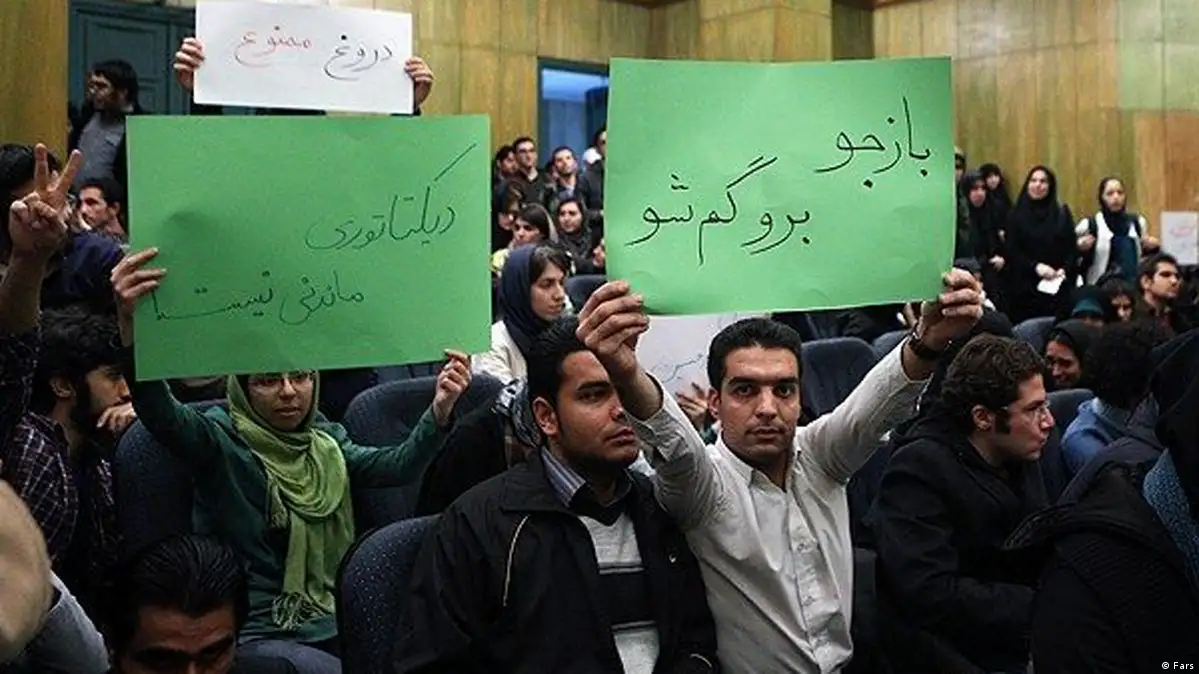 دروغ ممنوع
دیکتاتوری
ماندنی نیست
بازجو
برو گم شو
© Fars